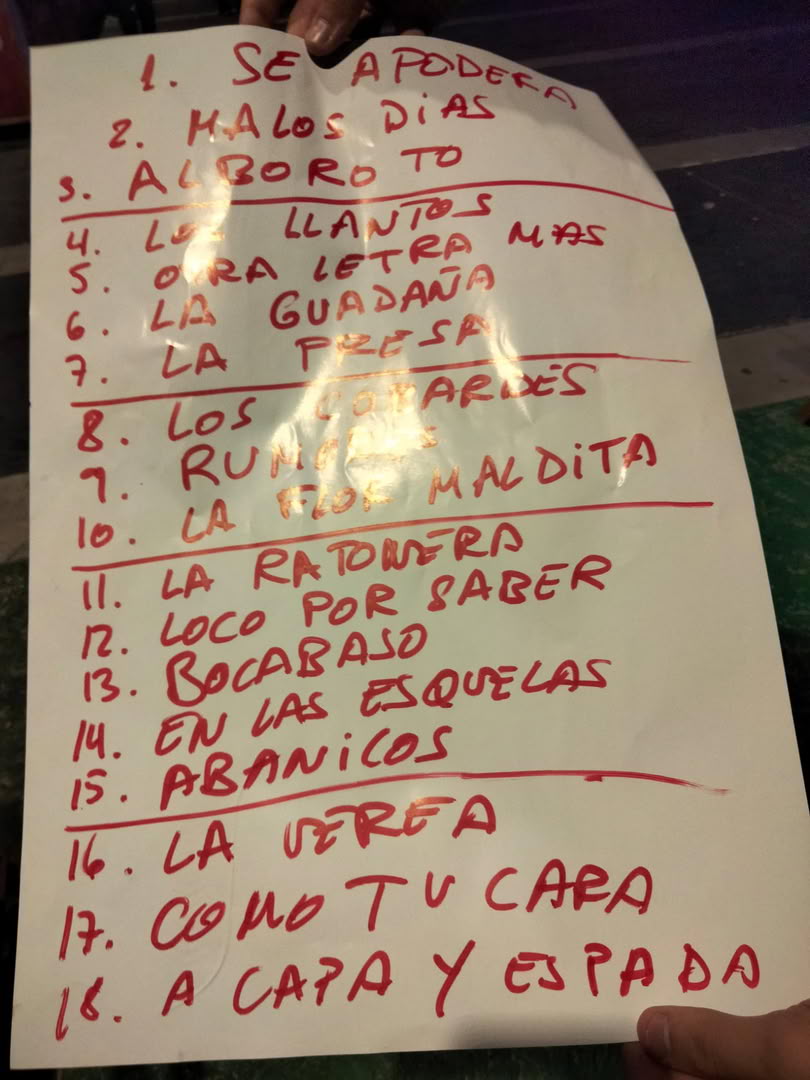 1. SE APODERA
2. MALOS DiAS
3. ALBOROTO
4. LOS LLANTOS
5. OTRA LETRA MAS
6. LA GUADAÑA
7. LA PRESA
8. LOS COBARDES
9. RUMORES
10. LA FLOR MALDiTA
11. LA RATONERA
12. LOCO POR SABER
13. BOCABASO
14. EN LAS ESQUELAS
15. ABANiCOS
16. LA VEREA
17. COMO TU CARA
18. A CAPA Y ESPADA